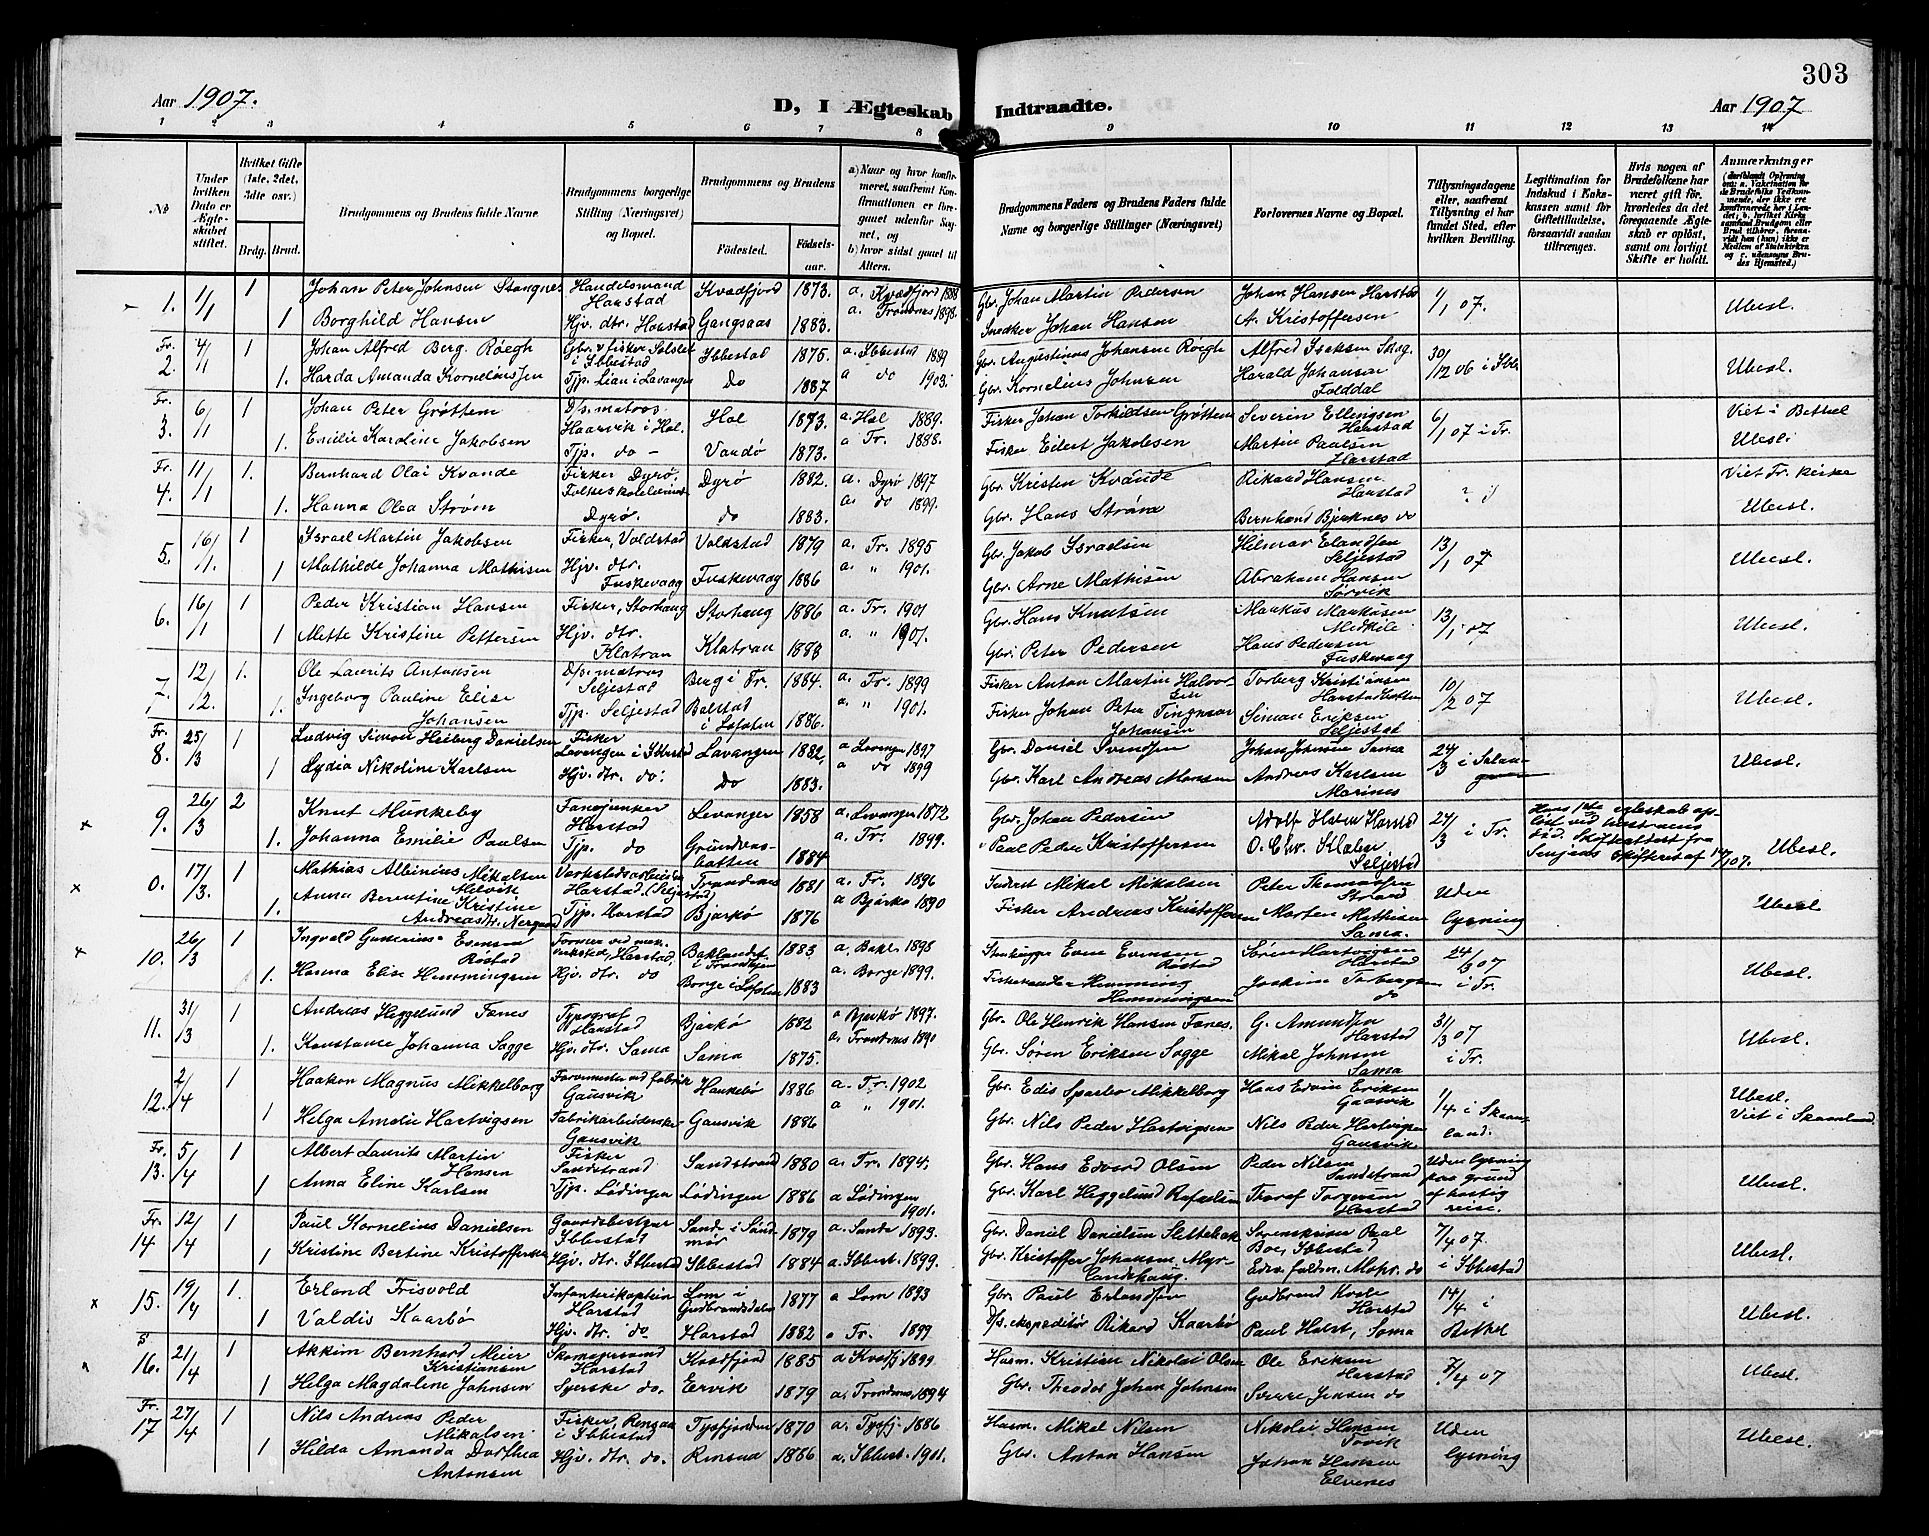 303
Aar 1907.
D, I Ægteskab Indtraadte.
Aar 1907
1 2 3 4 5 6 7 8 9 10 11 12 13 14
No
Under hvilken Dato er Ægteskabet stiftet.
Hvilket Gifte (1ste, 2det, 3die osv.)
Brdg. Brud.
Brudgommens og Brudens fulde Navne.
Brudgommens borgerlige Stilling (Næringsvei) og Bopæl.
Brudgommens og Brudens
Fødested.
Fødselsaar.
a) Naar og hvor konfirmeret, saafremt Konfirmationen er foregaaet udenfor Sognet, og
b) hvor sidst gaaet til Alters.
Brudgommens Faders og Brudens Faders fulde Navne og borgerlige Stillinger (Næringsvei)
Forlovernes Navne og Bopæl.
Tillysningsdagene eller, saafremt Tillysning ei har fundet Sted, efter hvilken Bevilling.
Legitimation for Indskud i Enkekassen samt for Giftetilladelse, forsaavidt saadan tiltrænges.
Hvis nogen af Brudefolkene har været gift før, hvorledes da det foregaaende Ægteskab er opløst, samt om lovligt Skifte er holdt.
Anmærkninger
1. 1/1 1 Johan Peter Johnsen Stangnes Handelsmand Harstad Kvædfjord 1873. a. Kvædfjord 1888 Gbr. Johan Martin Pedersen Johan Hansen Harstad 1/1 07. Ubesl.
1 Borghild Hansen Hjv. dtr. Harstad Gangsaas 1883. a. Trondenes 1898. Snedker Johan Hansen A. Kristoffersen
Fr. 2. 4/1 1 Johan Alfred Berg Røegh Gbr. & fisker i Ibbestad Ibbestad 1875. a. Ibbestad 1889 Gbr. Augustinus Johansen Røegh Alfred Isaksen 30/12 06 i Ibb. Ubesl.
1. Harda Amanda Korneliussen Tjp. Lian i Lavangen do 1887 a do 1903. Gbr. Kornelius Johnsen Harald Johansen Folddal
Fr. 3. 6/1 1 Johan Peter Grøttem D/s. matros Haarvik i Hol. Hol 1873. a. Hol 1889. Fisker Johan Torkildsen Grøttem Severin Ellingsen Harstad 6/1 07 i Tr. Viet i Bethel
1. Emilie Karoline Jakobsen Tjp. do - Vardø 1873. a Tr. 1888. Fisker Eilert Jakobsen Martin Paulsen Harstad Ubesl.
Fr. 4. 11/1 1. Bernhard Olai Kvande Fisker Dyrø. Dyrø 1882. a. Dyrø 1897 Gbr. Kristen Kvande Rikard Hansen Harstad ? Viet Tr. kirke
1. Hanna Olea Strøm Dyrø. do 1883. a. do 1899. Gbr. Hans Strøm Bernhard Bjerknes do Ubesl.
5. 16/1. 1 Israel Martin Jakobsen Fisker, Voldstad Voldstad 1879 a. Tr. 1895 Gbr. Jakob Israelsen Hilmar Elandsen Seljestad 13/1 07 Ubesl.
1 Mathilde Johanna Mathisen Hjv. dtr. Fuskevaag Fuskevaag 1886 a. " 1901. Gbr. Arne Mathisen Abraham Hansen Sørvik
6. 16/1 1 Peder Kristian Hansen Fisker, Storhaug Storhaug 1886 a. Tr. 1901 Gbr. Hans Knutsen Markus Markusen Medkile 13/1 07 Ubesl.
1 Mette Kristine Pettersen Hjv. dtr. Klatran Klatran 1888 a. " 1901. Gbr. Peter Pedersen Hans Pedersen Fuskevaag
7. 12/2. 1. Ole Laurits Antonsen D/s. matros Seljestad Berg i Tr. 1884. a. Tr. 1899 Fisker Anton Martin Halvorsen Torberg Kristiansen Harstadbotten 10/2 07 Ubesl.
1. Ingeborg Pauline Elise Johansen Tjp. Seljestad Balstad i Lofoten 1886. a " 1901. Fisker Johan Peter Johansen Simon Eriksen Seljestad
Fr. 8. 25/3 1 Ludvig Simon Heiberg Danielsen Fisker Lavangen i Ibbestad Lavangen 1882, a Lavangen 1897 Gbr. Daniel Svendsen Johan Johnsen Sama 24/3 i Salangen Ubesl.
1 Lydia Nikoline Karlsen Hjv. dtr. do. do 1883. a do 1899 Gbr. Karl Andreas Monsen Andreas Karlsen
9. 26/3 2 Knut Munkeby Fanejunker Harstad Levanger 1858 a. Levanger 1872 Gbr. Johan Pedersen Adolf Hansen Harstad 24/3 i Tr. Hans 1ste egteskab opløst ved hustruens død. Skifteattest fra Senjens skifteret af 14/1 07. Ubesl.
1. Johanna Emilie Paulsen Tjp. do 1884 a. Tr. 1899. Paul Peder Kristoffersen O. Chr. Seljestad
0. 17/3. 1 Mathias Albinius Mikalsen Melvik Verkstedsarbeider Harstad (Seljestad) Trondenes 1881 a. Tr. 1896 Inderst Mikal Mikalsen Peter Thomassen Strand Uden lysning Ubesl
1. Anna Berentine Kristine Andreasdtr. Nergaard Tjp. Harstad Bjarkø 1876 a Bjarkø 1890 Fisker Andreas Kristoffersen Morten Mathisen Sama.
10. 26/3 1 Ingvald Gunerius Evensen Røstad Former ved mek. verksted, Harstad. Baklandet i Trondhjem 1883 a. Bakl. 1898 Stenhugger Even Evensen Røstad Søren Hartvigsen Harstad 24/3 07 i Tr. Ubesl.
1. Hanna Elise Hemmingsen Hjv. dtr. do Borge i Lofoten 1883 a. Borge 1899. Hemming Hemmingsen Joakim Torbergsen do
11. 31/3 1 Andreas Heggelund Fenes Typograf Harstad Bjarkø 1882 a Bjarkø 1897. Gbr. Ole Henrik Hansen Fenes. G. Amundsen Harstad 31/3 07 i Tr. Ubesl.
1. Konstanse Johanna Sagge Hjv. dtr. Sama Sama 1875. a. Trondenes 1890 Gbr. Søren Eriksen Sagge Mikal Johnsen Sama
12. 2/4 1 Haakon Magnus Mikkelborg Farvemester ved fabrik Gausvik 1886 a. Tr. 1902 Gbr. Edis Sparbo Mikkelborg Hans Edvin Eriksen Gausvik 1/4 i Skaanland. Ubesl.
1 Helga Amalie Hartvigsen Fabrikarbeiderske Gausvik Gausvik 1886 a " 1901. Gbr. Nils Peder Hartvigsen Nils Peder Hartvigsen Gausvik Viet i Skaanland
Fr. 13. 5/4 1 Albert Laurits Martin Hansen Fisker Sandstrand Sandstrand 1880 a. Tr. 1894. Gbr. Hans Edvard Olsen Peder Nilsen Sandstrand Uden lysning paa grund af hastig reise. Ubesl.
1 Anna Eline Karlsen Tjp. Lødingen Lødingen 1886 a Lødingen 1901. Gbr. Karl Heggelund Rafaelsen Torgersen Harstad
Fr. 14 12/4 1 Paul Kornelius Danielsen Gaardsbestyrer Ibbestad Sande i Søndmør 1879 a. Sande 1893. Gbr. Daniel Danielsen Slettebak Sorenskriver Boe, Ibbestad 7/4 07. i Ibbestad Ubesl.
1 Kristine Bertine Kristoffersen Hjv. dtr. Ibbestad Ibbestad 1884 a. Ibbest. 1899. Gbr. Kristoffer Johansen Myrlandshaug.
15. 19/4 1. Erland Frisvold Infanterikaptein Harstad Lom i Gudbrandsdalen 1877 a Lom 1893 Gbr. Paul Erlandsen Gudbrand Harstad 14/4 i Bethel Ubesl.
1 Valdis Kaarbø Hjv. dtr. do Harstad 1882 a Tr. 1899 D/s. ekspeditør Rikard Kaarbø Paul Holst, Sama
16. 21/4 1 Akkim Bernhard Meier Kristiansen Skomagersvend Harstad Kvædfjord 1885 a Kvædfj. 1899. Husm. Kristian Nikolai Olsen Ole Eriksen Harstad 7/4 07 Ubesl.
1 Helga Magdaline Johnsen Syerske do. Ervik 1879 a. Trondenes 1894 Gbr. Theodor Johan Johnsen Sverre Jensen do
Fr. 17 27/4 1 Nils Andreas Peder Mikalsen Fisker, Rensaa i Ibbestad Tysfjorden 1870 a. Tysfj. 1886 Husm. Mikal Nilsen Nikolai Hansen Tovik Uden lysning Ubesl.
1 Hilda Amanda Dorthea Antonsen Hjv. dtr. do. Rensaa 1886 a. Ibbest. 1901. Gbr. Anton Hansen Johan Hansen Elvenes